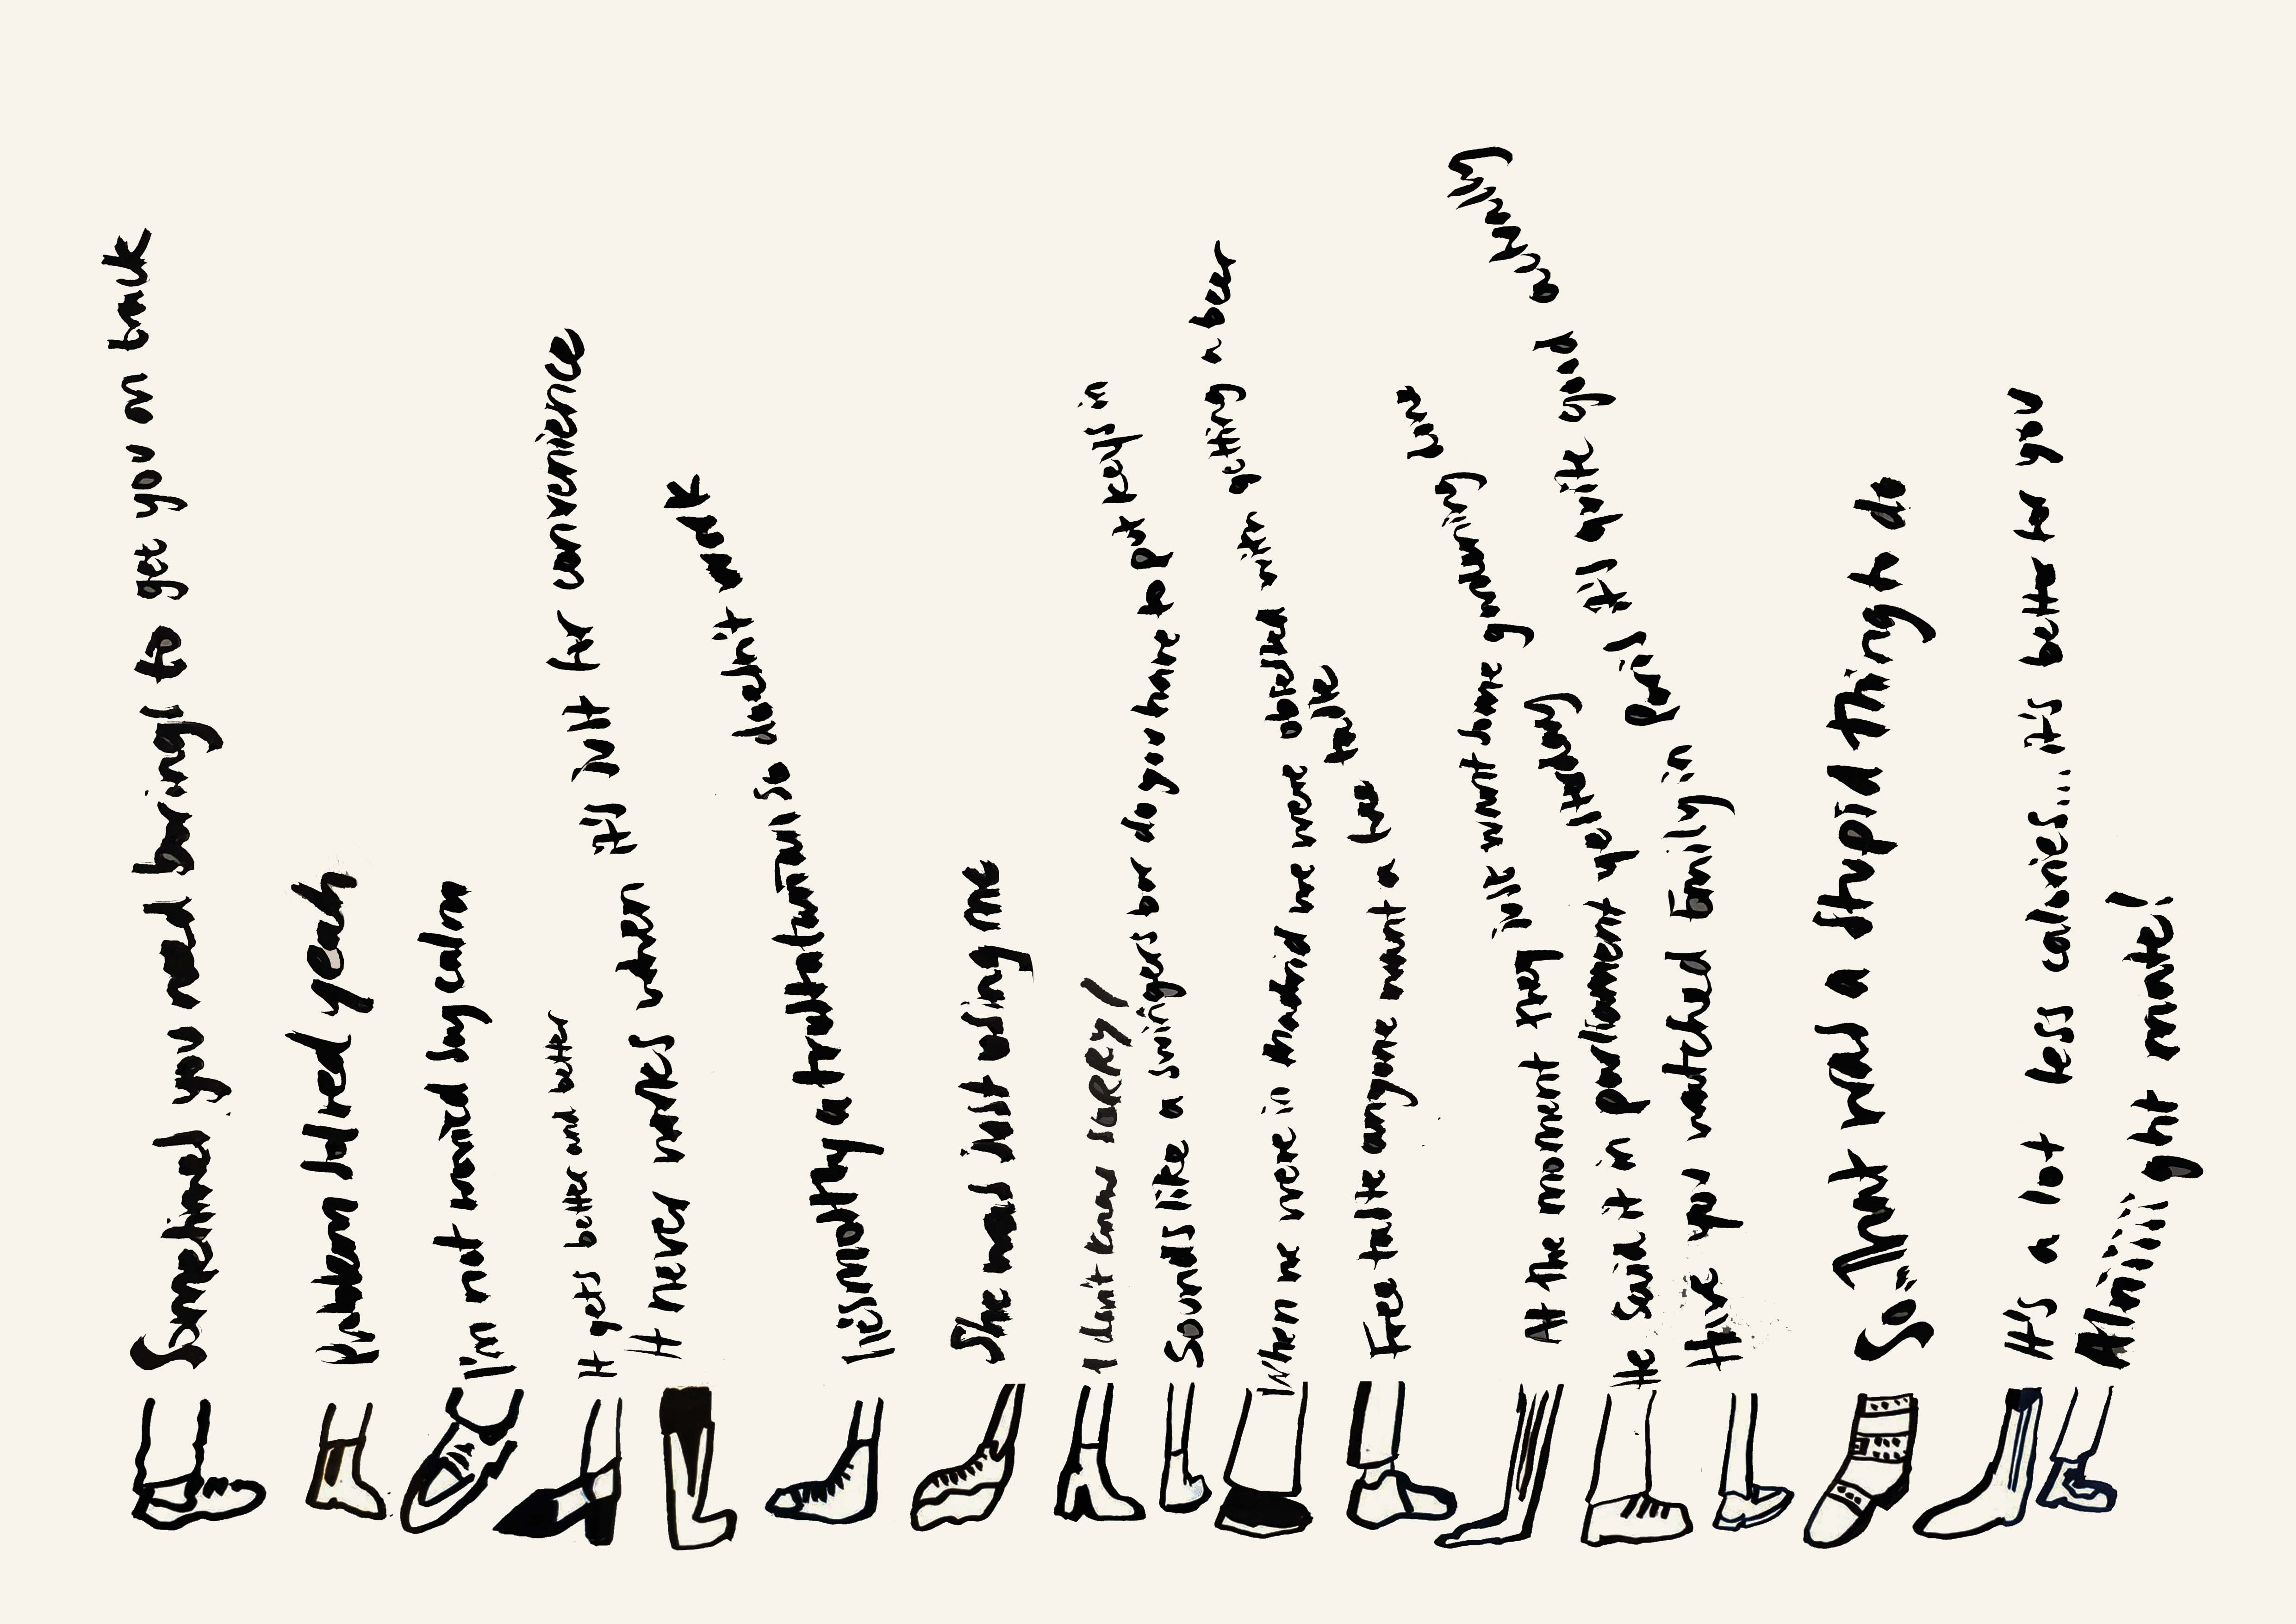 Sometimes you need borings to get you on back
Robson Jubred yeah
I'm not word by calm
It gets better and better
It never works when it's just for convenience
He's mostly a traditionalist so doesn't work
She was just using me
I don't know SORRY!
Sounds like a swingers bar do you have to put keys in
When we were in Madrid we were obsessed with getting a beer
Free tuste anyone want a free tuste
At the moment they just want home grooming low
He said it in parliament yesterday
Have you watched Emily in Paris it's quite good
So.. That was a stupid thing to do
It's a lot less calories... it's better for you
Alriiiiiight mate!